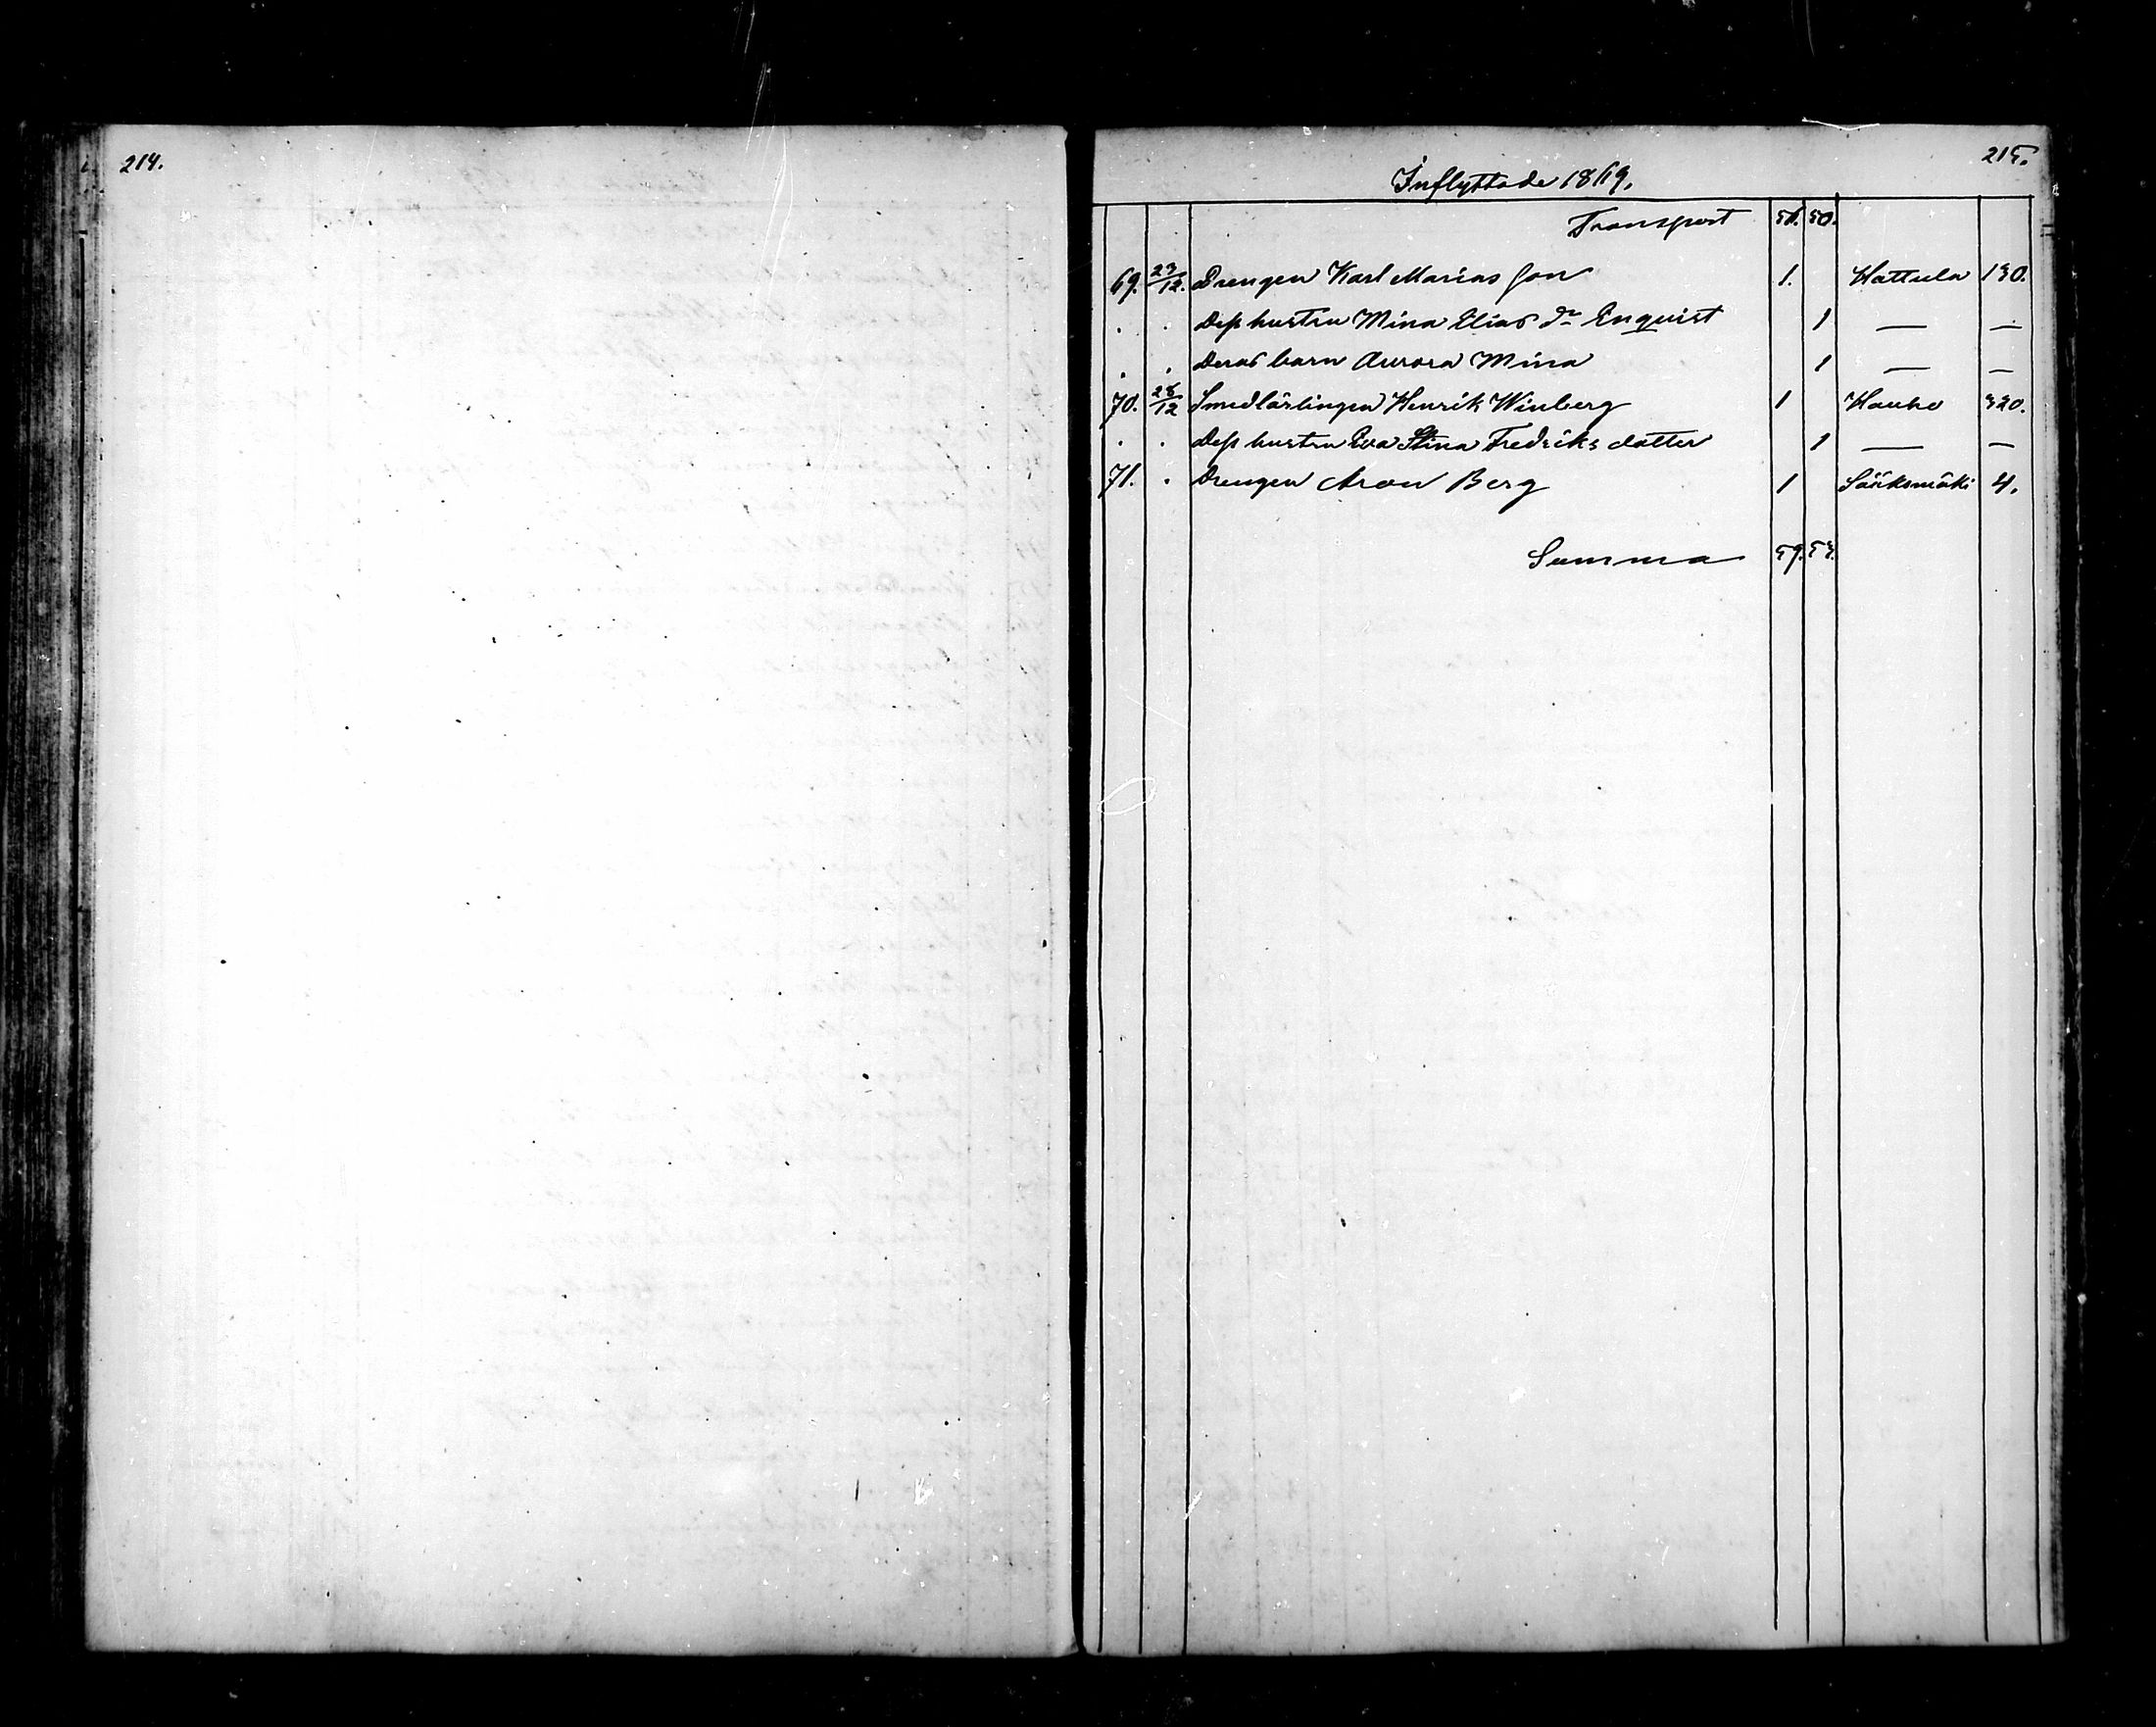 214.
215.
Inflyttade 1869.
Transport 56. 50.
69. 23/12. Drengen Karl Marias son 1. Hattula 130.
. . Dess hustru Mina Elias dr Enqvist 1 — —
. . Deras barn Aurora Mina 1 — —
70. 28/12 Smedlärlingen Henrik Winberg 1 Hauho 320.
. . Dess hustru Eva Stina Fredriks dotter 1 — —
71. . Drengen Aron Berg 1 Sääksmäki 4.
Summa 59. 53.